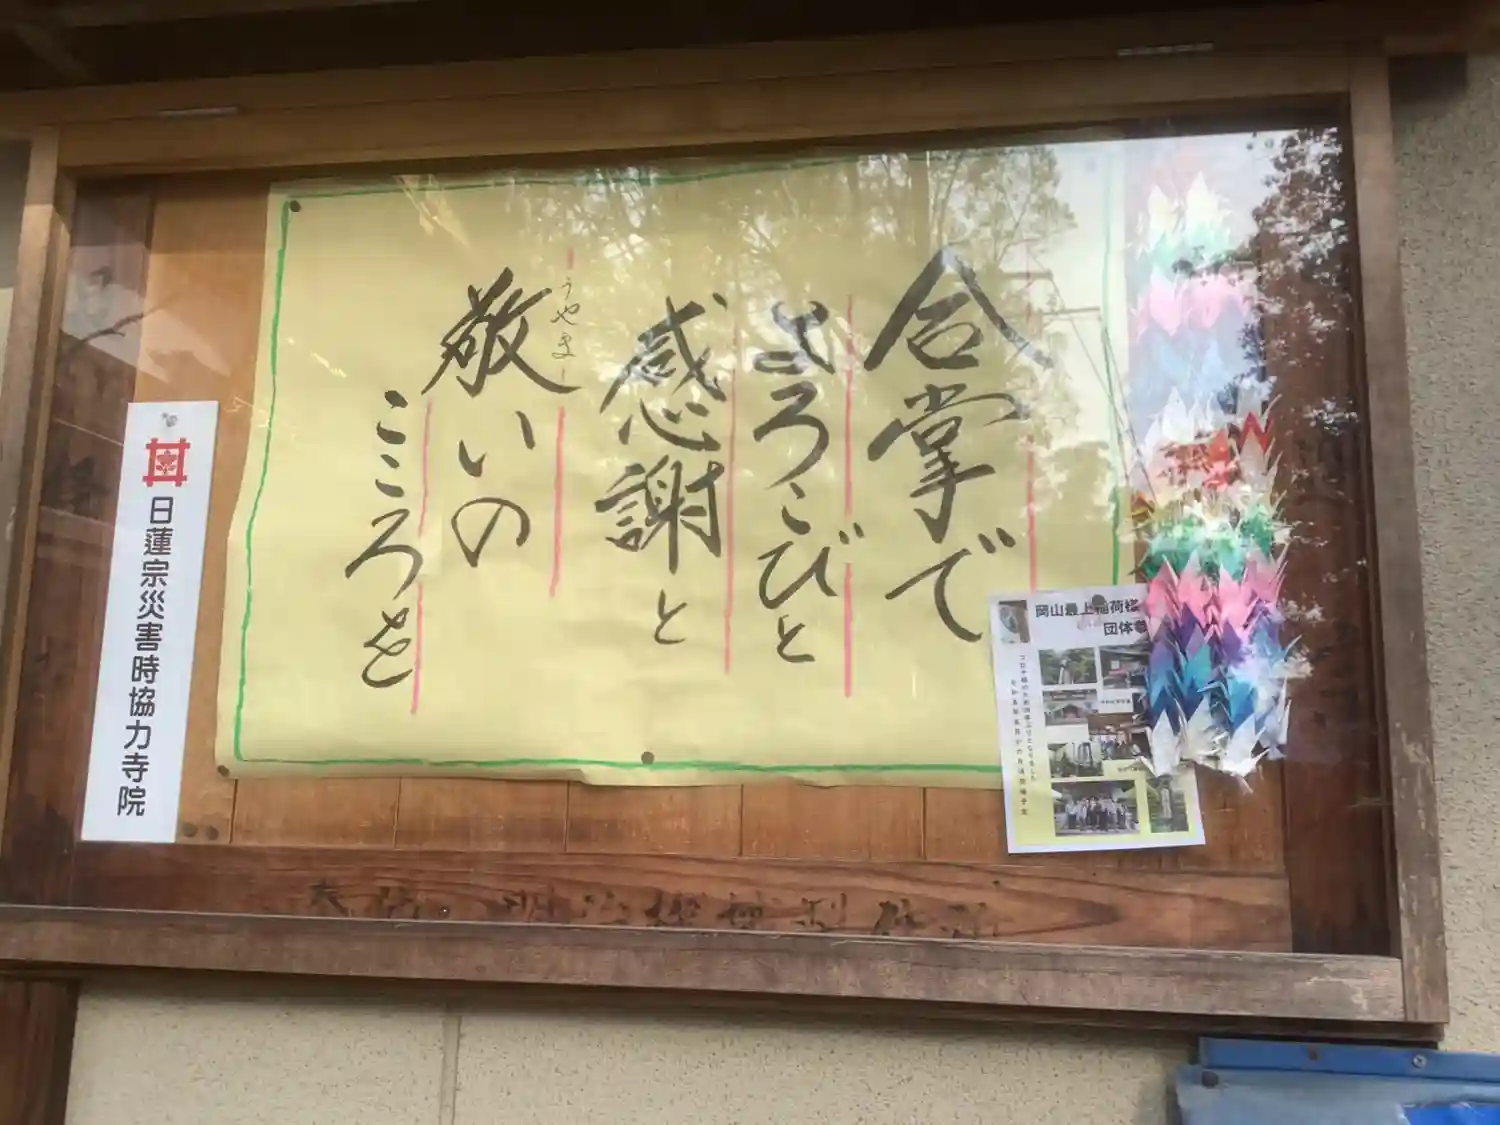 合掌で
よろこびと
感謝と
敬いの
うやま
こころを
岡山最上稲荷様
団体参
日蓮宗災害時協力寺院